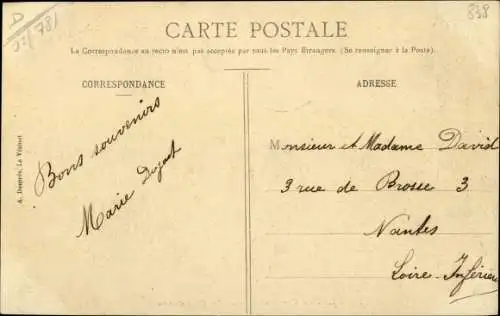 CARTE POSTALE
La Correspondance au recto n'est pas acceptée par tous les Pays Étrangers. (Se renseigner à la Poste).
CORRESPONDANCE
ADRESSE
Bons souvenirs
Marie
Monsieur et Madame David
3 rue de Brosse 3
Nantes
Loire-Inférieure
838